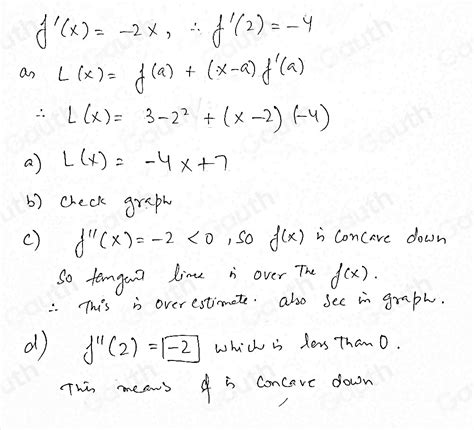 f'(x) = -2x, ∴ f'(2) = -4
as L(x) = f(a) + (x-a) f'(a)
∴ L(x) = 3-2² + (x-2) (-4)
a) L(x) = -4x+7
b) check graph
c) f''(x) = -2 < 0, so f(x) is concave down
So tangent line is over The f(x).
∴ This is overestimate. also see in graph.
d) f''(2) = -2 which is less than 0.
This means f is concave down